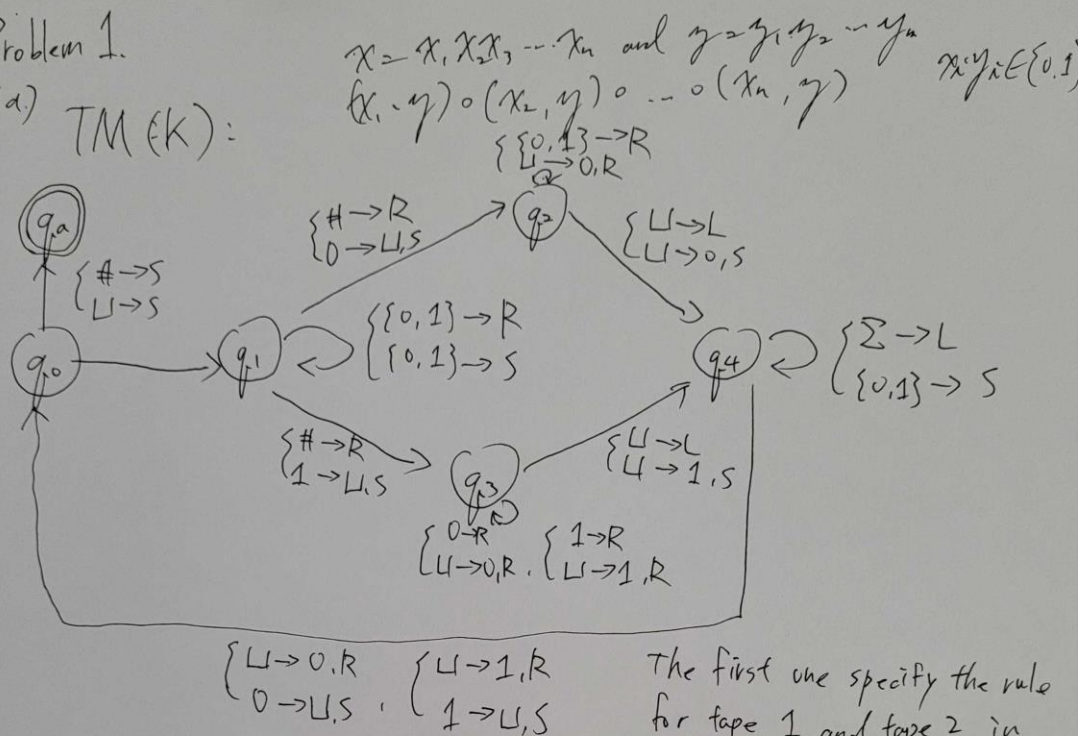 Problem 1.
x = x₁x₂x₃ ⋯ xₙ and y = y₁y₂ ⋯ yₙ xᵢyᵢ∈{0,1}
a.)
(x₁, y)∘(x₂, y)∘ … ∘(xₙ, y)
TM(K):
{ {0,1}→R
⊔→0,R
qa
q2
{ #→R
0→⊔,S
{ ⊔→L
⊔→0,S
{ #→S
⊔→S
q0
q1
{ {0,1}→R
{0,1}→S
q4
{ Σ→L
{0,1}→S
{ #→R
1→⊔,S
q3
{ ⊔→L
⊔→1,S
{ 0→R
⊔→0,R . { 1→R
⊔→1,R
{ ⊔→0,R
0→⊔,S , { ⊔→1,R
1→⊔,S
The first one specify the rule
for tape 1 and tape 2 in